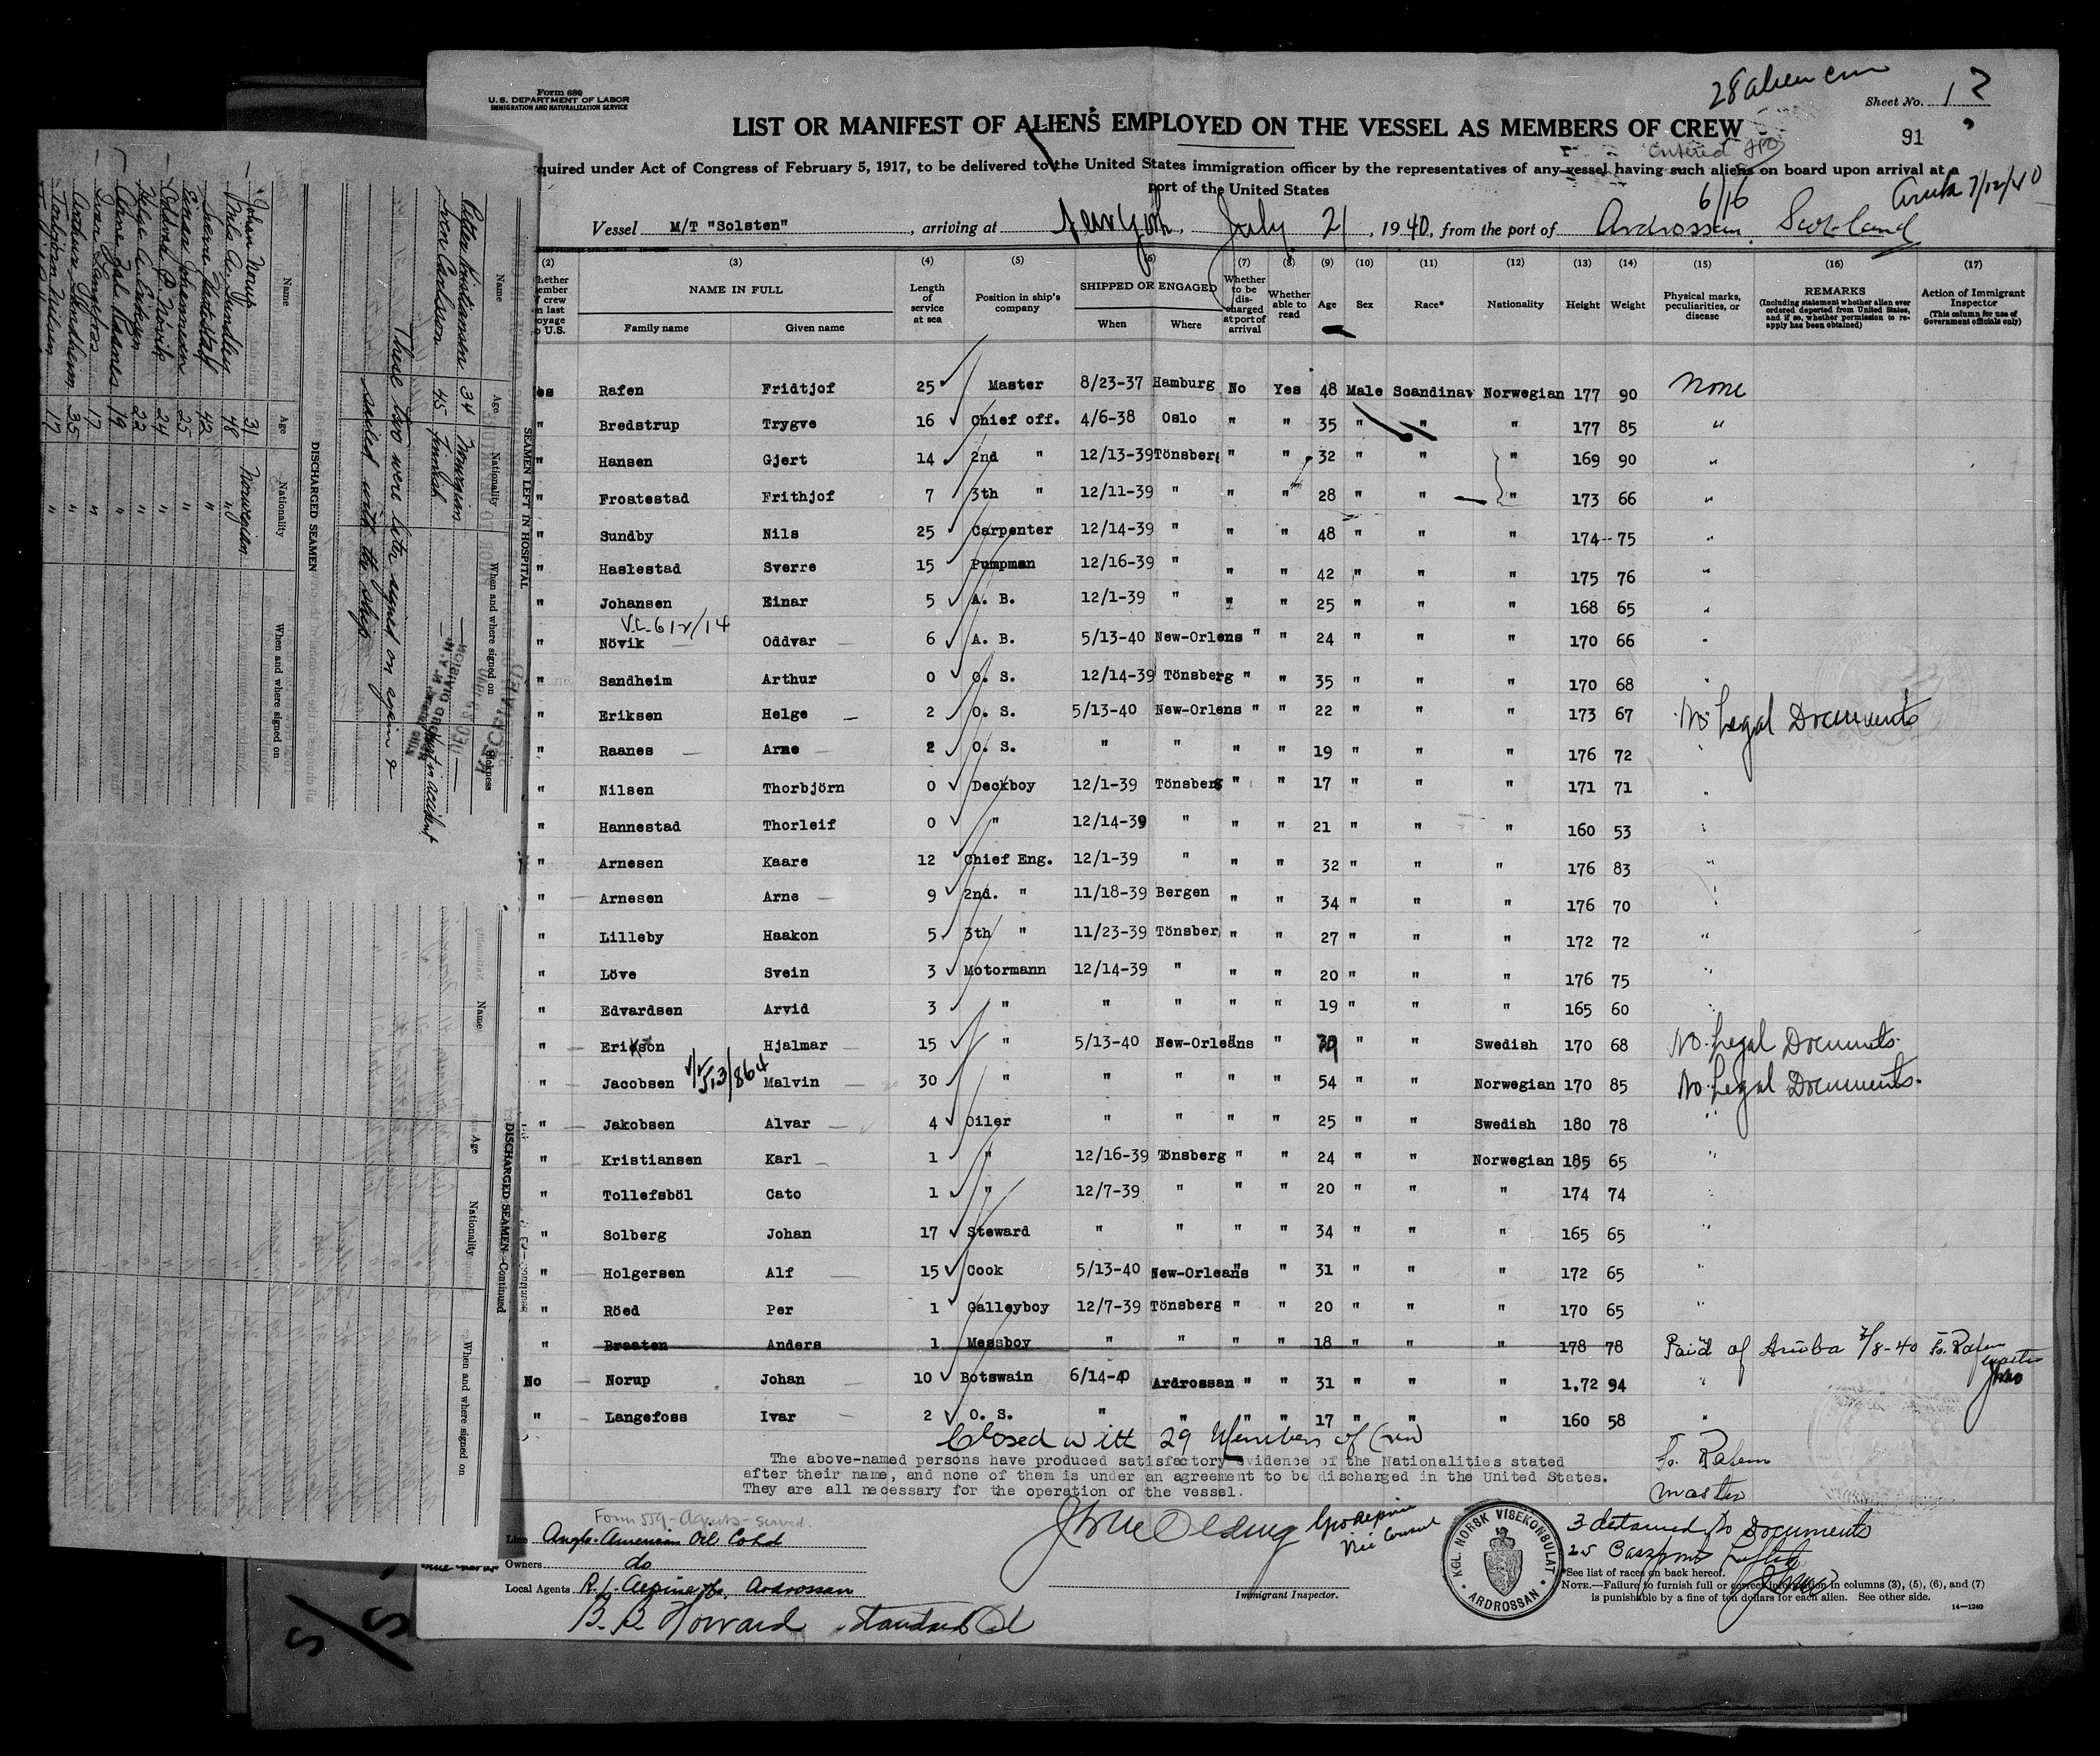 Form 680
U.S. DEPARTMENT OF LABOR
IMMIGRATION AND NATURALIZATION SERVICE
28 alien crew
Sheet No. 1
91
LIST OR MANIFEST OF ALIENS EMPLOYED ON THE VESSEL AS MEMBERS OF CREW
quired under Act of Congress of February 5, 1917, to be delivered to the United States immigration officer by the representatives of any vessel having such aliens on board upon arrival at a
port of the United States
6/16
Vessel M/T "Solsten", arriving at New York, July 21, 1940, from the port of Ardrossan, Scotland
(2) (3) (4) (5) (6) (7) (8) (9) (10) (11) (12) (13) (14) (15) (16) (17)
NAME IN FULL
Family name Given name
Length of service at sea
Position in ship's company
SHIPPED OR ENGAGED
When Where
Whether to be discharged at port of arrival
Whether able to read
Age
Sex
Race*
Nationality
Height
Weight
Physical marks, peculiarities, or disease
REMARKS
(Including statement whether alien ever ordered deported from United States, and if so, whether permission to reapply has been obtained)
Action of Immigrant Inspector
(This column for use of Government officials only)
es Rafen Fridtjof 25 Master 8/23-37 Hamburg No Yes 48 Male Scandinav Norwegian 177 90 None
" Bredstrup Trygve 16 Chief off. 4/6-38 Oslo " " 35 " " " 177 85 "
" Hansen Gjert 14 2nd " 12/13-39 Tönsberg " " 32 " " " 169 90 "
" Frostestad Frithjof 7 3th " 12/11-39 " " " 28 " " " 173 66 "
" Sundby Nils 25 Carpenter 12/14-39 " " " 48 " " " 174 75 "
" Haslestad Sverre 15 Pumpman 12/16-39 " " " 42 " " " 175 76 "
" Johansen Einar 5 A. B. 12/1-39 " " " 25 " " " 168 65 "
V.L. 612/14
" Növik Oddvar 6 A. B. 5/13-40 New-Orlens " " 24 " " " 170 66 "
" Sandheim Arthur 0 O. S. 12/14-39 Tönsberg " " 35 " " " 170 68 "
" Eriksen Helge 2 O. S. 5/13-40 New-Orlens " " 22 " " " 173 67 No Legal Documents
" Raanes Arne 2 O. S. " " " " 19 " " " 176 72 "
" Nilsen Thorbjörn 0 Deckboy 12/1-39 Tönsberg " " 17 " " " 171 71 "
" Hannestad Thorleif 0 " 12/14-39 " " " 21 " " " 160 53 "
" Arnesen Kaare 12 Chief Eng. 12/1-39 " " " 32 " " " 176 83 "
" Arnesen Arne 9 2nd. " 11/18-39 Bergen " " 34 " " " 176 70 "
" Lilleby Haakon 5 3th " 11/23-39 Tönsber " " 27 " " " 172 72 "
" Löve Svein 3 Motormann 12/14-39 " " " 20 " " " 176 75 "
" Edvardsen Arvid 3 " " " " " 19 " " " 165 60 "
" Erikson Hjalmar 15 " 5/13-40 New-Orleans " " 39 " " Swedish 170 68 No Legal Documents
" Jacobsen Malvin 30 " " " " " 54 " " Norwegian 170 85 No Legal Documents.
" Jakobsen Alvar 4 Oiler " " " " 25 " " Swedish 180 78 "
" Kristiansen Karl 1 " 12/16-39 Tönsberg " " 24 " " Norwegian 185 65 "
" Tollefsböl Cato 1 " 12/7-39 " " " 20 " " " 174 74 "
" Solberg Johan 17 Steward " " " " 34 " " " 165 65 "
" Holgersen Alf 15 Cook 5/13-40 New-Orleans " " 31 " " " 172 65 "
" Röed Per 1 Galleyboy 12/7-39 Tönsberg " " 20 " " " 170 65 "
" Braaten Anders 1 Messboy " " " " 18 " " " 178 78 Paid of Aruba 7/8-40 Fr. Rafen master
No Norup Johan 10 Botswain 6/14-40 Ardrossan " " 31 " " " 1.72 94 "
" Langefoss Ivar 2 O. S. " " " " 17 " " " 160 58 "
Closed witt 29 Members of Crew
The above-named persons have produced satisfactory evidence of the Nationalities stated
after their name, and none of them is under an agreement to be discharged in the United States.
They are all necessary for the operation of the vessel.
Fr. Rafen
master
Form 559 - Agents - served.
Line Anglo-American Oil Co Ltd
Owners do
Local Agents R. L. Alpine Ardrossan
B. B. Howard Standard Oil
Vice Consul
Immigrant Inspector.
KGL. NORSK VISEKONSULAT
ARDROSSAN
3 detained No Documents
25 Passports
*See list of races on back hereof.
NOTE.—Failure to furnish full or correct information in columns (3), (5), (6), and (7)
is punishable by a fine of ten dollars for each alien. See other side.
14—1240
SEAMEN LEFT IN HOSPITAL
Name Age Nationality When and where signed on Sickness
Petter Kristiansen 34 Norwegian
Sven Carlsson 45 Finnish
These two were later signed on again &
sailed with the ship
DISCHARGED SEAMEN
Name Age Nationality When and where signed on
Johan Norup 31 Norwegian
Nils A. Sundby 48 "
Sverre Haslestad 42 "
Einar Johannesen 25 "
Oddvar P. Növik 24 "
Helge A. Eriksen 22 "
Arne Dal Raanes 19 "
Ivar Langefoss 17 "
Arthur Sandheim 35 "
Torbjörn Nilsen 17 "
DISCHARGED SEAMEN—Continued
Name Age Nationality When and where signed on